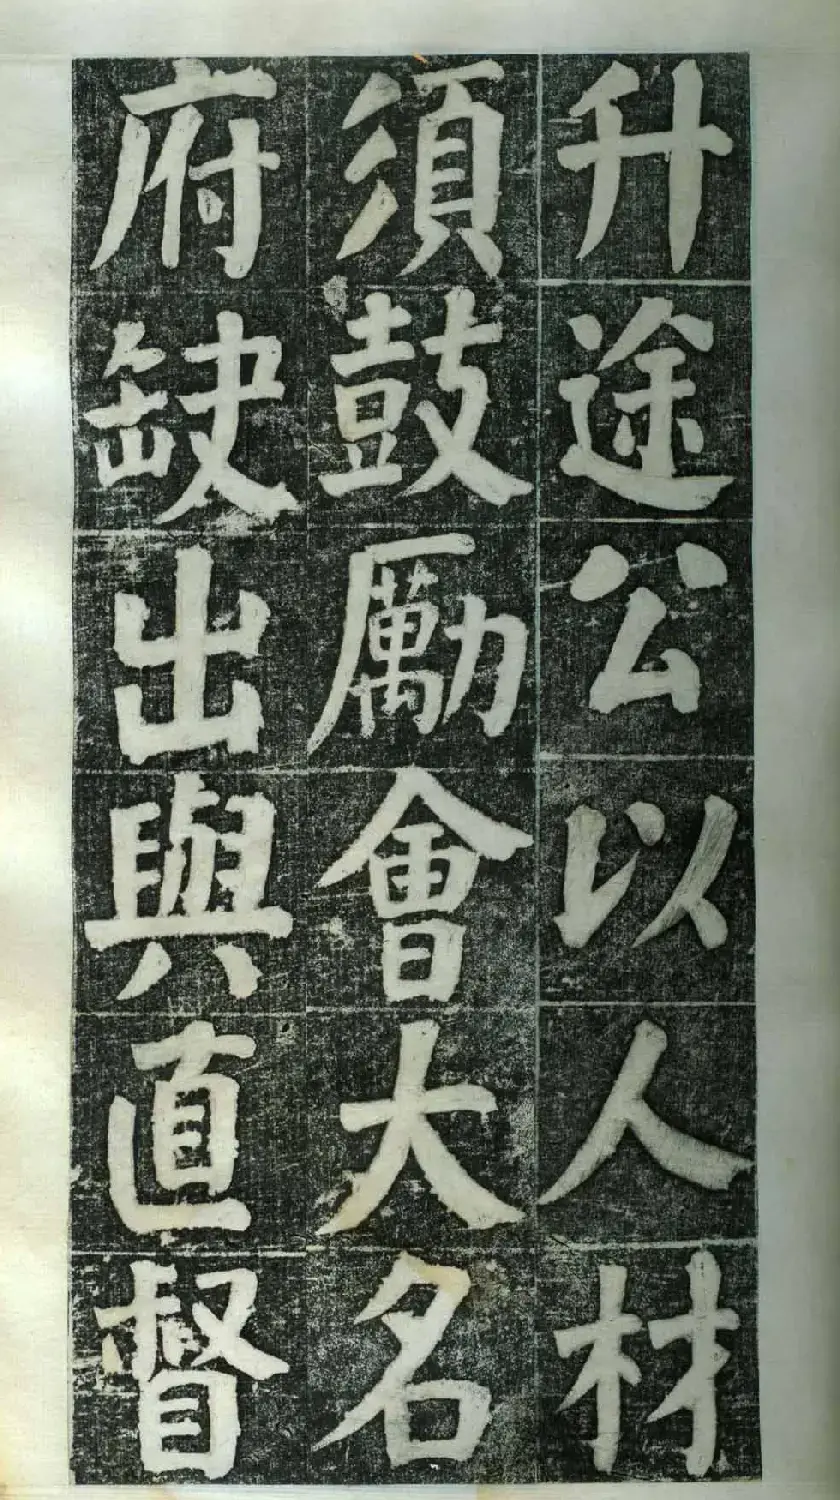 升途公以人材
須鼓厲力會大名
府缺出與直督